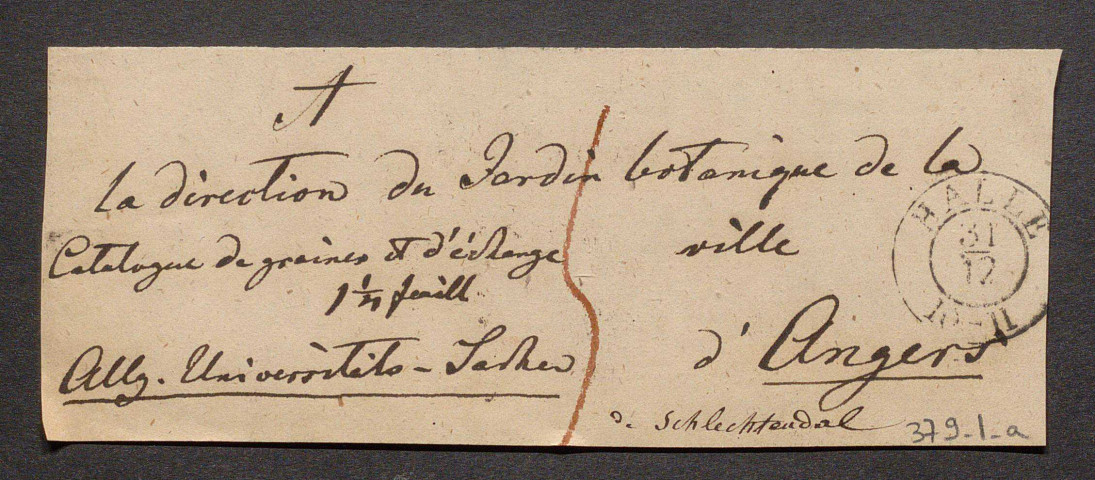 A
la direction du Jardin botanique de la
ville
Catalogue de graines et d'échange
1 1/4 feuill
d'Angers
Allg. Universitäts-Sachen
de Schlechtendal
379-1-a
HALLE
31
12
10-11